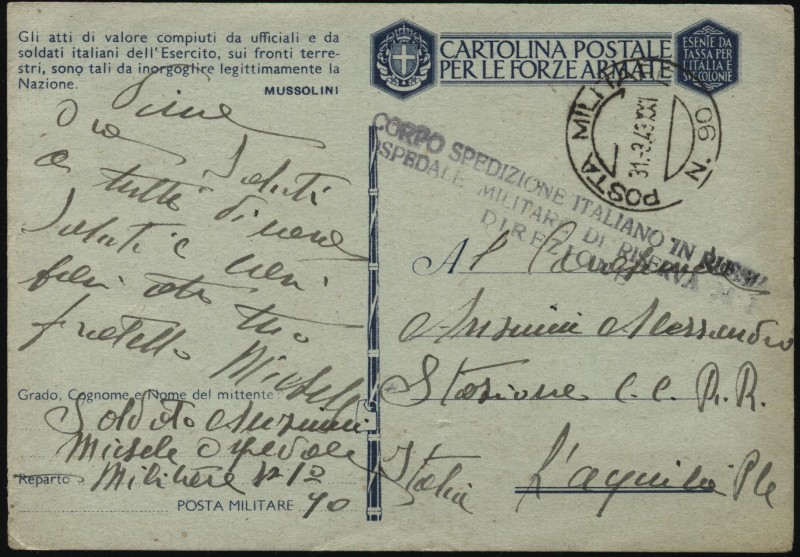 Gli atti di valore compiuti da ufficiali e da
soldati italiani dell'Esercito, sui fronti terre-
stri, sono tali da inorgoglire legittimamente la
Nazione.
MUSSOLINI
saluti
a tutti
saluti e
fratello Michele
Grado, Cognome e Nome del mittente:
Soldato Anzuini
Michele Ospedale
Reparto Militare N 10
POSTA MILITARE 90
CARTOLINA POSTALE
PER LE FORZE ARMATE
ESENTE DA
TASSA PER
L'ITALIA E
SUE COLONIE
POSTA MILITARE N. 90
31.3.43 XXI
CORPO SPEDIZIONE ITALIANO IN RUSSIA
OSPEDALE MILITARE DI RISERVA
DIREZIONE
Al
Anzuini Alessandro
Stazione C.C. R.R.
Italia L'aquila